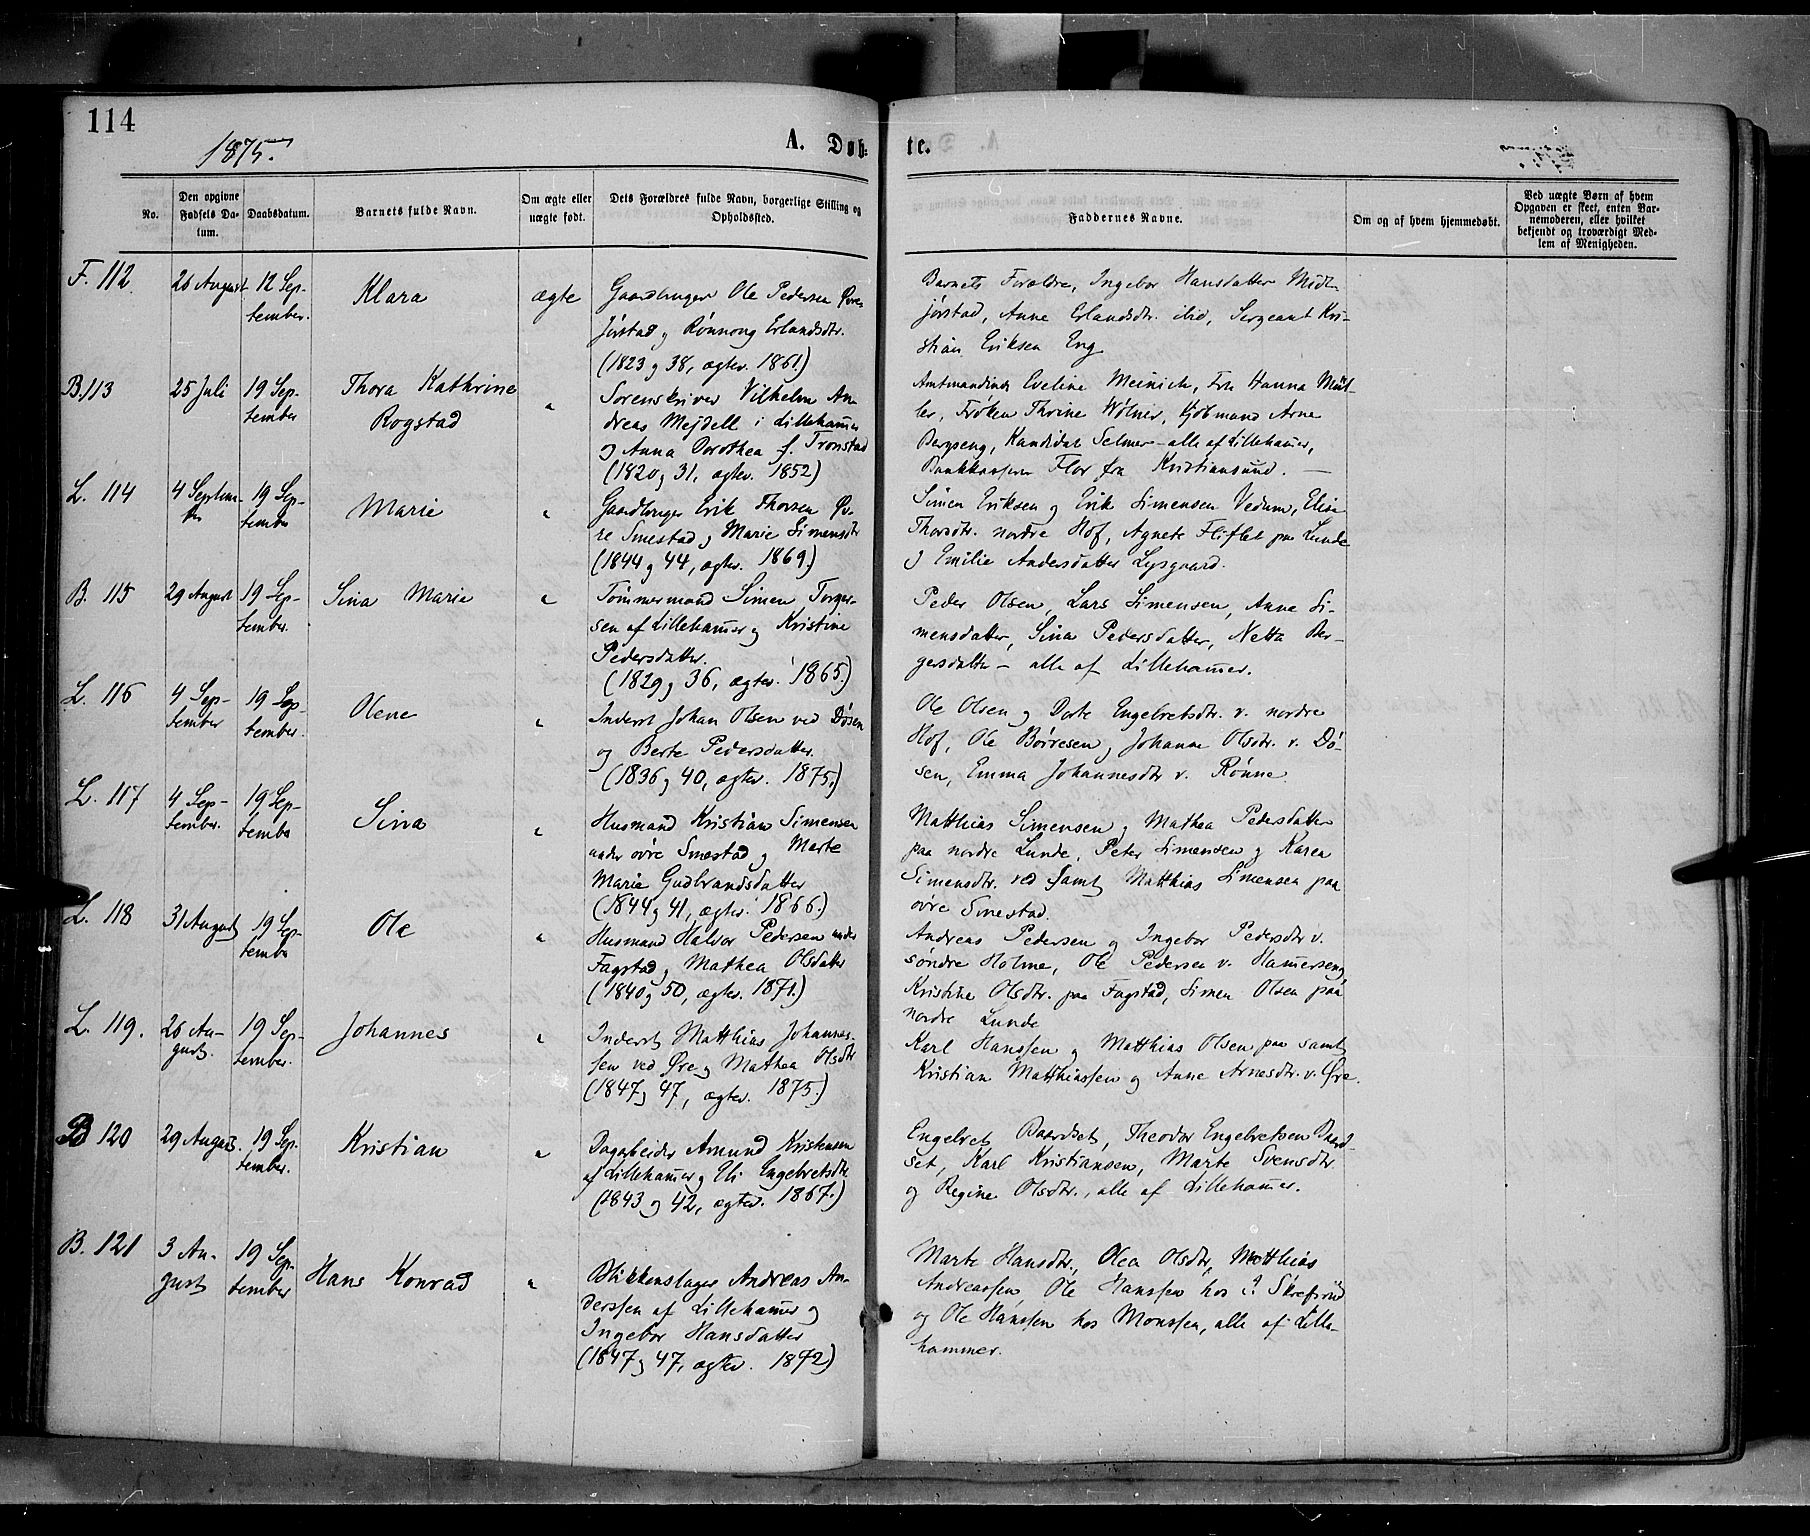 114
1875.
A. Døb-
te.
No.
Den opgivne Fødsels Da-tum.
Daabsdatum.
Barnets fulde Navn.
Om ægte eller uægte født.
Dets Forældres fulde Navn, borgerlige Stilling og Opholdssted.
Faddernes Navne.
Om og af hvem hjemmedøbt.
Ved uægte Børn af hvem Opgaven er skeet, enten Bar-nemoderen, eller hvilket bekjendt og troværdigt Med-lem af Menigheden.
F. 112
26 August
12 Sep-
tember.
Klara
ægte
Gaardbruger Ole Pedersen Øvre
Jørstad og Rønnong Erlandsdtr.
(1823 og 38, ægtev. 1861)
Barnets Forældre, Ingebor Hansdatter Midt-
jørstad, Anne Erlandsdtr. ibid, Sergeant Kri-
stian Eriksen Eng
B. 113
25 Juli
19 Sep-
tember
Thora Kathrine
Rogstad
"
Sorenskriver Vilhelm An-
dreas Mejdell i Lillehammer
og Anna Dorothea f. Tronstad
(1820 og 31, ægtev. 1852)
Amtmandinde Eveline Meinich, Fru Hanna Møl-
ler, Frøken Thrine Wølner, Kjøbmand Arne
Bergseng, Kandidat Selmer - alle af Lillehammer,
Bankkasserer Flor fra Kristiansund. -
L. 114
4 Septem-
ber
19 Sep-
tember
Marie
"
Gaardbruger Erik Thorsen Øv-
re Smestad og Marie Simensdtr
(1844 og 44, ægtev. 1869.)
Simen Eriksen og Erik Simensen Vedum, Elise
Thorsdtr. nordre Hof, Agnete Fliflet paa Lunde
og Emilie Andersdatter Lysgaard.
B. 115
29 August
19 Sep-
tember.
Sina Marie
"
Tømmermand Simen Torger-
sen af Lillehammer og Kristine
Pedersdatter.
(1829 og 36, ægtev. 1865.)
Peder Olsen, Lars Simensen, Anne Si-
mensdatter, Sina Pedersdatter, Netta Ber-
gersdatter - alle af Lillehammer.
L. 116
4 Sep-
tember
19 Sep-
tember.
Olene
"
Inderst Johan Olsen ved Døsen
og Berte Pedersdatter.
(1836 og 40, ægtev. 1875.)
Ole Olsen og Dorte Engebretsdtr. v. nordre
Hof, Ole Børresen, Johanne Olsdtr. v. Dø-
sen, Emma Johannesdtr v. Rønne
L. 117
4 Sep-
tember.
19 Sep-
tember
Sina
"
Husmand Kristian Simensen
under øvre Smestad og Marte
Marie Gudbrandsdatter
(1844 og 41, ægtev. 1866.)
Matthias Simensen og Mathea Pedersdatter
paa nordre Lunde, Peter Simensen og Karen
Simensdtr. ved samt Matthias Simensen paa
øvre Smestad.
L. 118
31 August
19 Sep-
tember
Ole
"
Husmand Halvor Pedersen under
Fagstad og Mathea Olsdatter
(1840 og 50, ægtev. 1871.)
Andreas Pedersen og Ingebor Pedersdtr v.
søndre Holme, Ole Pedersen v. Hammerseng
Kristine Olsdtr. paa Fagstad, Simen Olsen paa
nordre Lunde
L. 119.
26 Au-
gust.
19 Sep-
tember.
Johannes
"
Inderst Matthias Johannes-
sen ved Øre og Mathea Olsdtr
(1847 og 47, ægtev. 1875.)
Karl Hanssen og Matthias Olsen paa samt
Kristian Matthiassen og Anne Arnesdtr. v. Øre.
B 120
29 August.
19 Sep-
tember.
Kristian
"
Dagarbeider Amund Kristensen
af Lillehammer og Eli Engebretsdtr
(1843 og 42, ægtev. 1867.)
Engebret Baardset, Theodor Engebretsen Baard-
set, Karl Kristiansen, Marte Svensdtr.
og Regine Olsdtr., alle af Lillehammer.
B. 121
3 Au-
gust
19 Sep-
tember
Hans Konrad
"
Blikkenslager Andreas An-
derssen af Lillehammer og
Ingebor Hansdatter
(1847 og 47, ægtev. 1872)
Marte Hansdtr., Olea Olsdtr, Matthias
Andreassen, Ole Hanssen hos Skrefsrud
og Ole Hanssen hos Monssen, alle af Lille-
hammer.